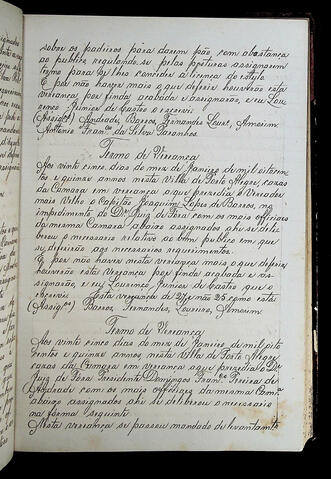 sobre os padeiros para darem pão com abastança
ao publico regulando-se pelas posturas assignarem
termo para se lhes conceder a licença do estylo
E por não haver mais o que deferir houverão esta
vereança por finda acabada e assignarão, e eu Lou
renço Junior de Castro o escrevi.
(Assig.os) Andrade, Barros, Fernandes, Amorim
Antonio Fran.co da Silva Paranhos
Termo de Vereança
Aos vinte cinco dias do mez de Janeiro de mil oitocen
tos e quinze annos nesta Villa de Porto Alegre, cazas
da Camara em vereança a que prezedio o Vereador
mais Velho o Capitão Joaquim Lopes de Barros, no
impedimento do D.or Juiz de Fora com os mais officiaes
da mesma Camara abaixo assignados ahi se deli
berou o necessario relativo ao bem publico em que
se deferirão aos necessarios requerimentos.
E por não haver nesta vereança mais o que deferir
houverão esta vereança por finda acabada e as-
signarão, e eu Lourenço Junior de Castro que o
escrevi. Esta vereança de 27 e não 25 como está
(Assig.os) Barros, Fernandes, Loureiro, Amorim
Termo de Vereança
Aos vinte cinco dias do mez de Janeiro de mil oito
centos e quinze annos nesta Villa de Porto Alegre
cazas da Camara em vereança a que prezedio o D.or
Juiz de Fora Prezidente Domingos Fran.co Pereira de
Andrade com os mais officiaes da mesma Cam.a
abaixo assignados ahi se deliberou o necessario
na forma seguinte
Nesta vereança se passou mandado de levantam.to